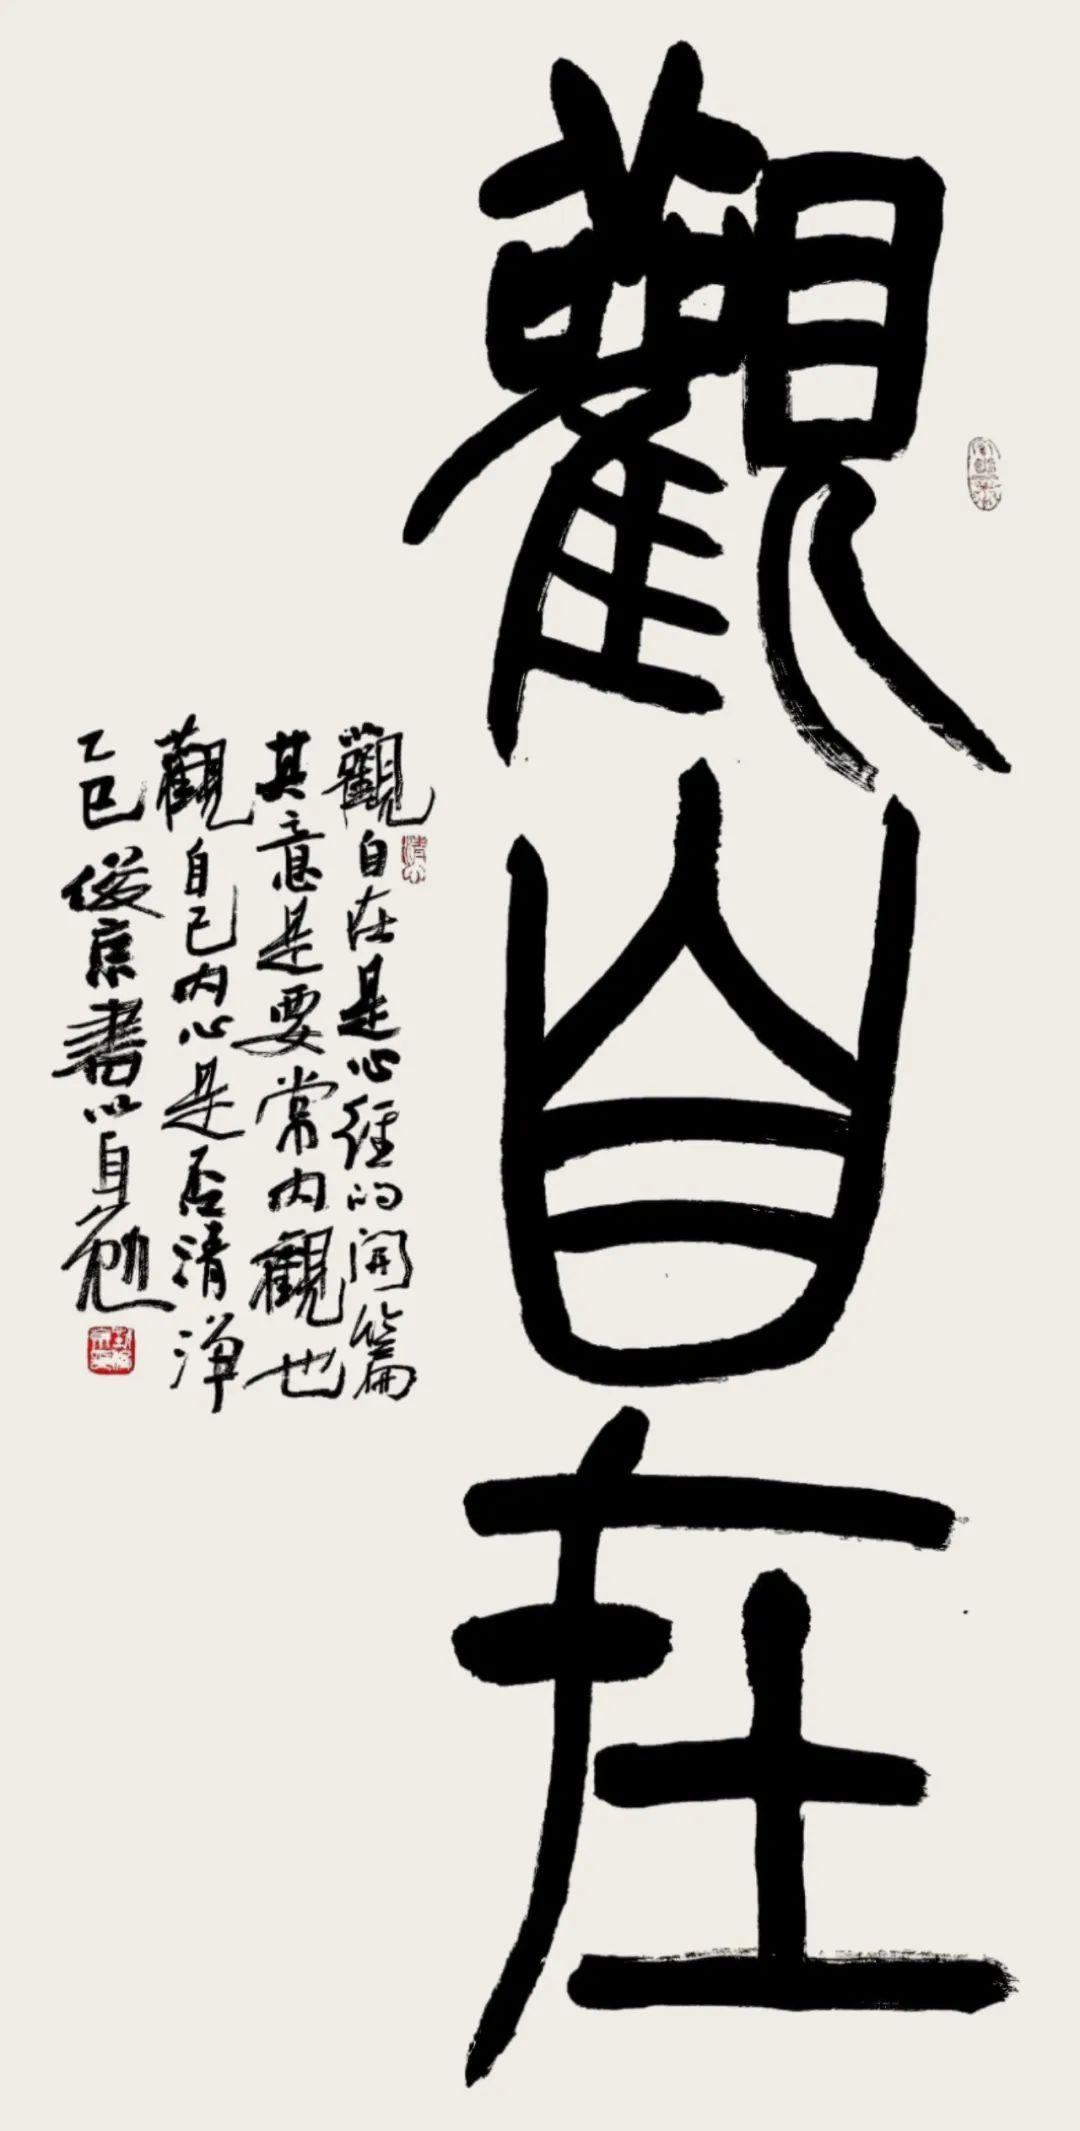 觀自在
觀自在是心經的開篇
其意是要常內觀也
觀自己內心是否清淨
乙巳俊京書以自勉